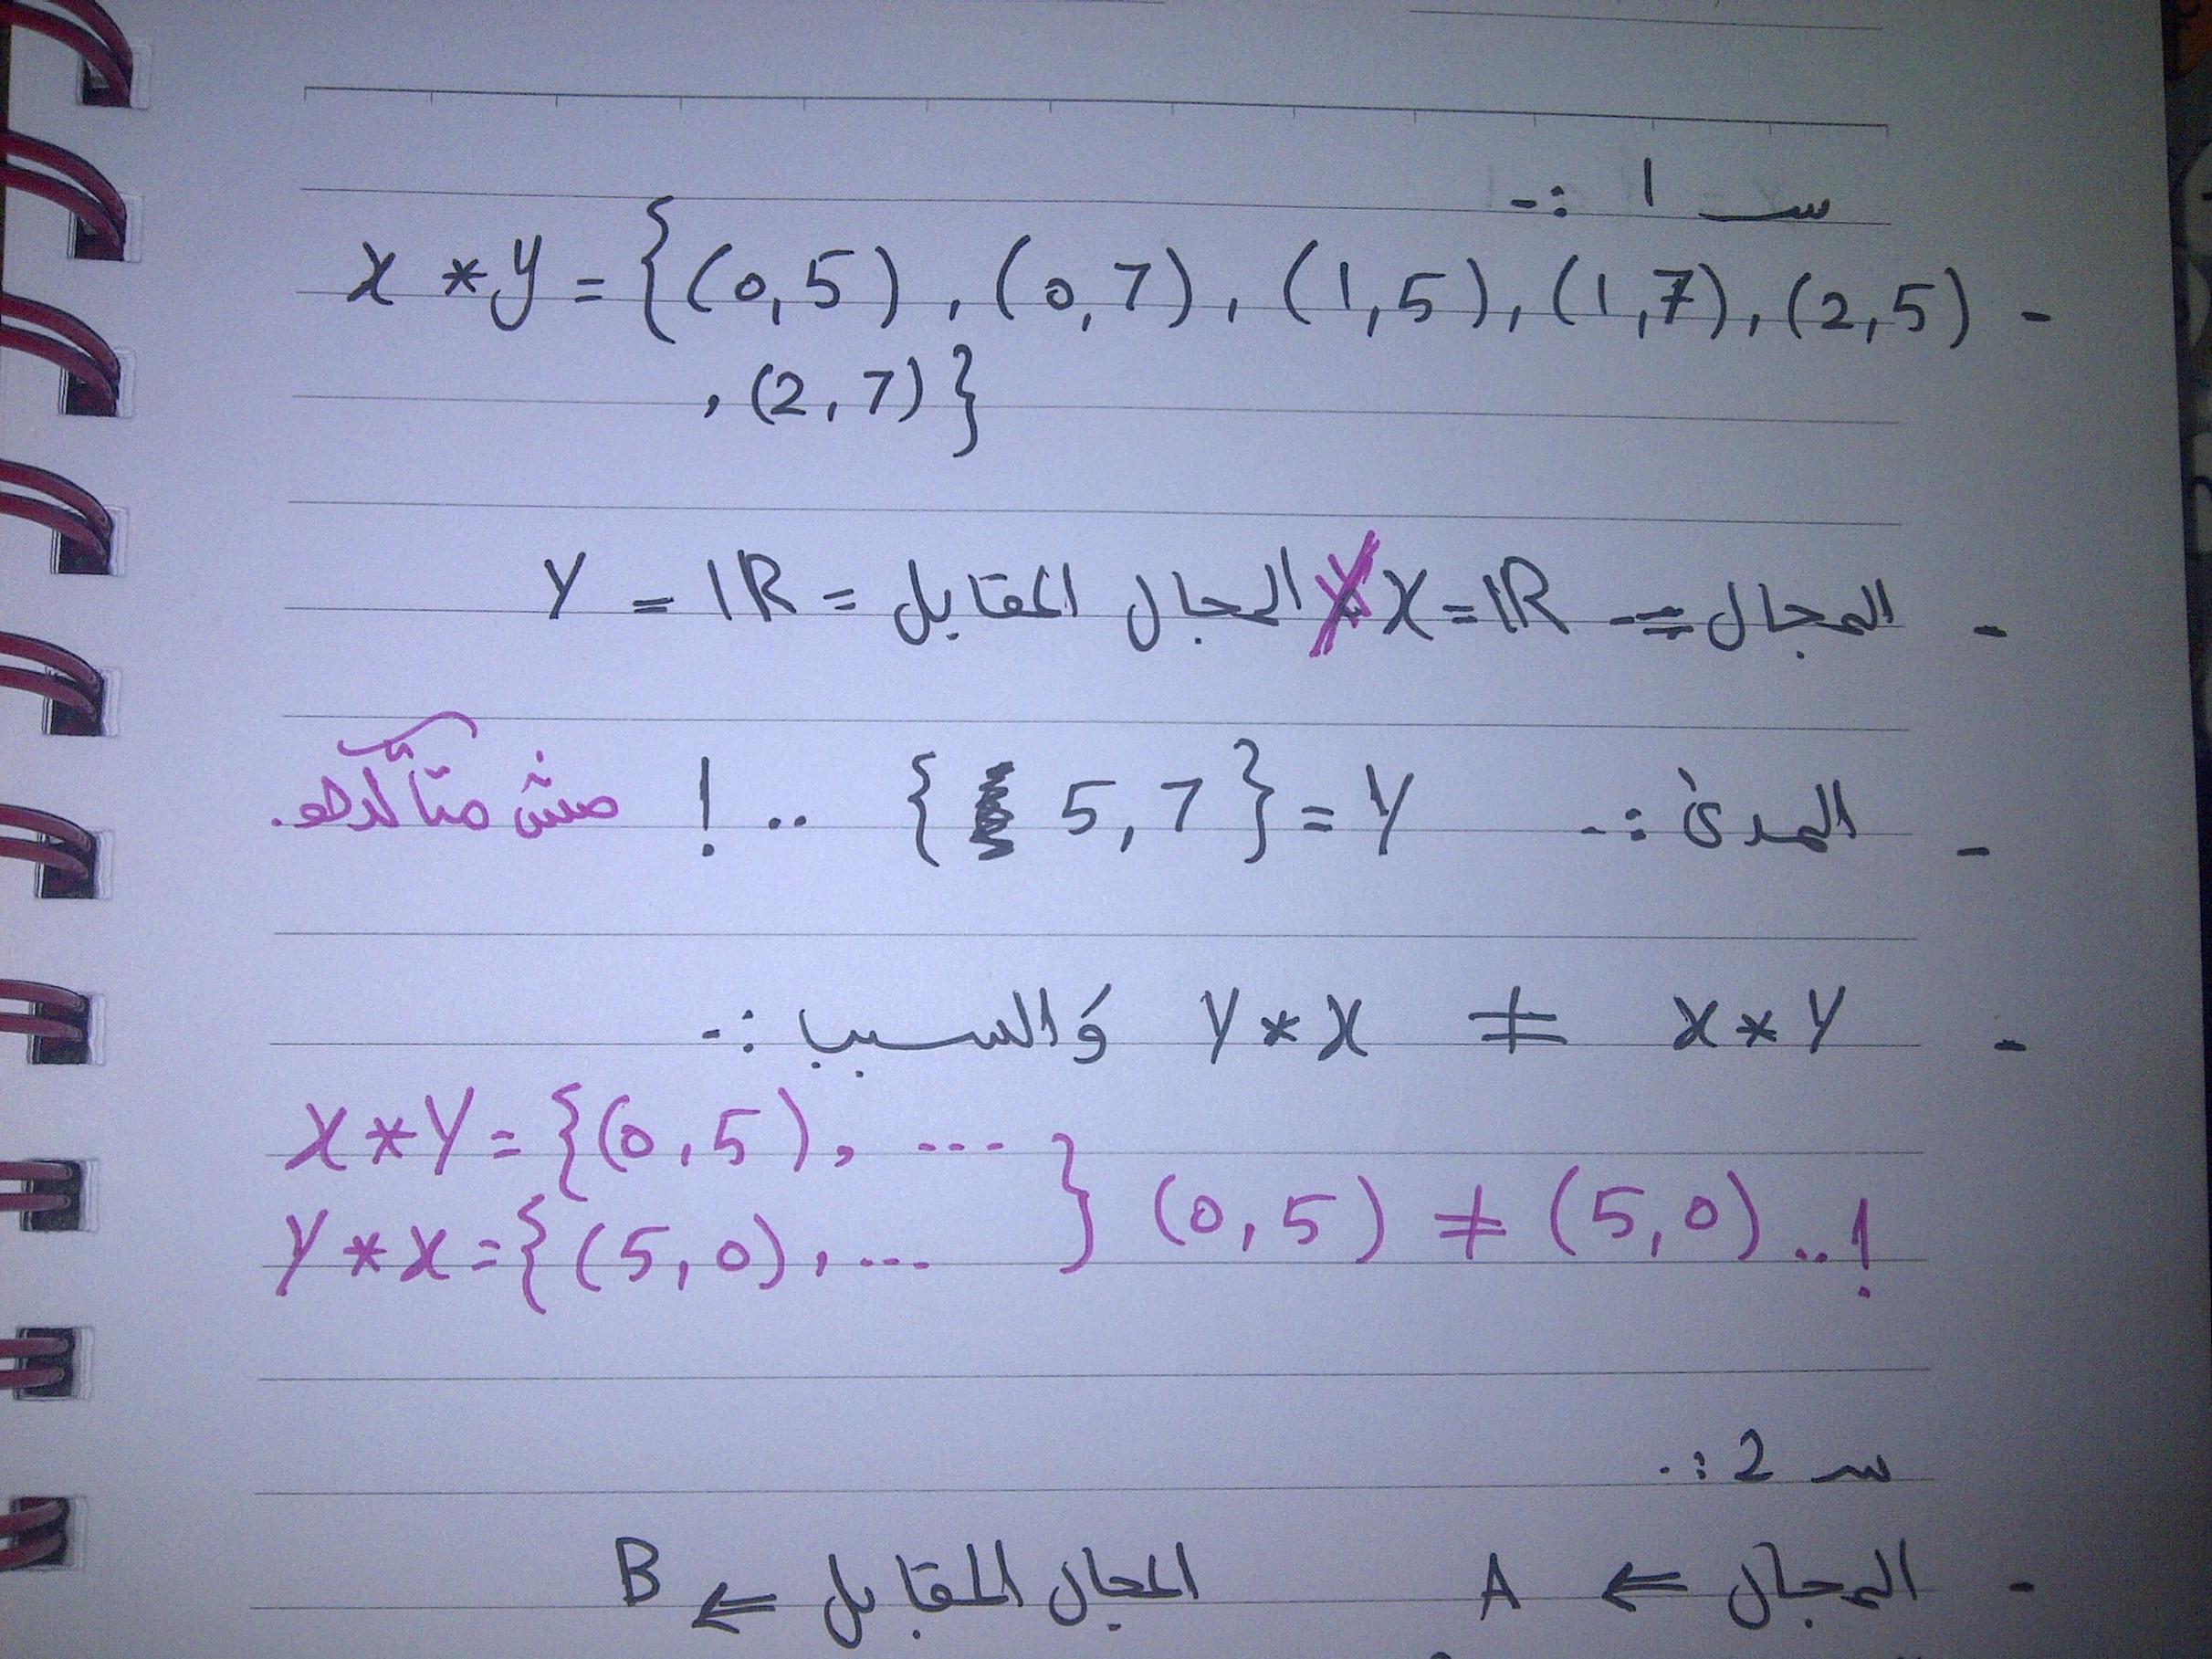 س 1 :-
- X * Y = {(0,5), (0,7), (1,5), (1,7), (2,5)
, (2,7)}
- المجال = X = IR المجال المقابل = Y = IR
- المدىٰ :- Y = { 5,7 } ..! مش متأكد هو.
- X * Y ≠ Y * X وَالسبب :-
X * Y = {(0,5), ...
Y * X = {(5,0), ... } (0,5) ≠ (5,0) ..!
س 2 :.
- المجال ⇐ A المجال المقابل ⇐ B